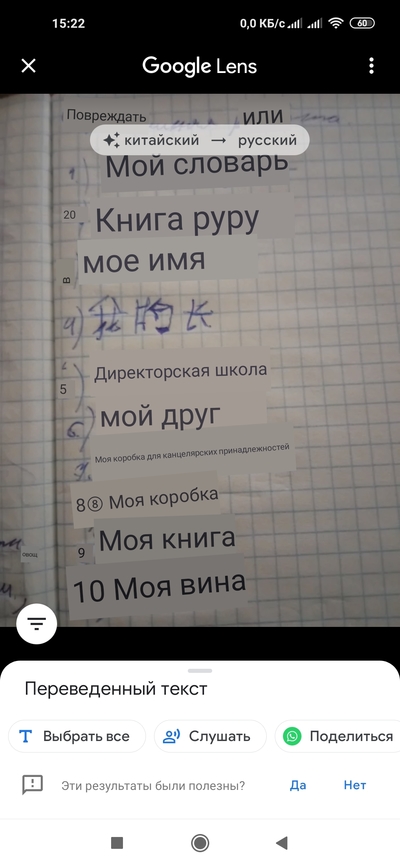 15:22
0,0 КБ/с
60
Google Lens
Повреждать
или
китайский → русский
1) Мой словарь
20 Книга руру
в мое имя
4)
5 Директорская школа
6) мой друг
Моя коробка для канцелярских принадлежностей
8⑧ Моя коробка
9 Моя книга
овощ
10 Моя вина
Переведенный текст
Выбрать все
Слушать
Поделиться
Эти результаты были полезны?
Да
Нет